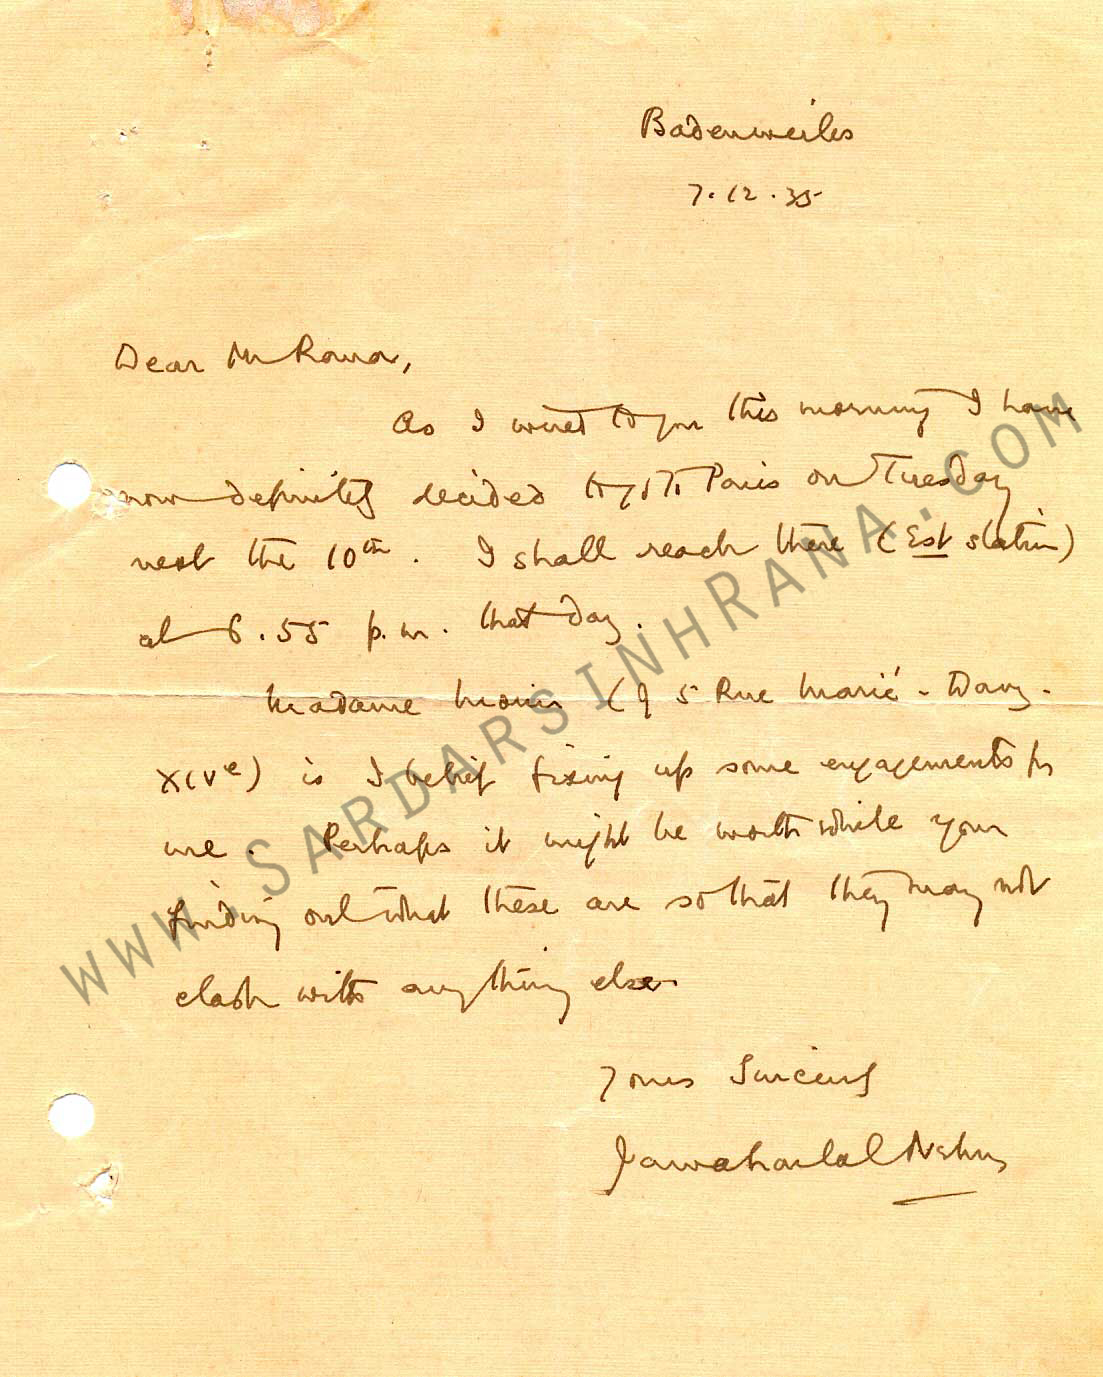 Badenweiler
7.12.35
Dear Mr Rana,
As I wired to you this morning I have
now definitely decided to go to Paris on Tuesday
next the 10th. I shall reach there (Est station)
at 6.55 p.m. that day.
Madame Morin (of 5 Rue Marié-Davy.
XIVe) is I belief fixing up some engagements for
me. Perhaps it might be worth while your
finding out what these are so that they may not
clash with anything else.
Yours Sincerely
Jawaharlal Nehru
WWW.SARDARSINHRANA.COM